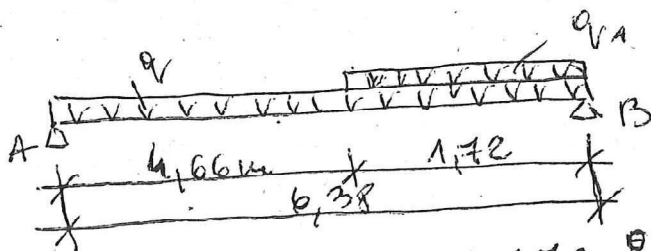 q qA
A B
4,66m 1,72
6,38